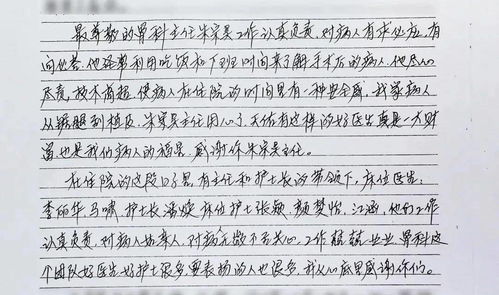 最尊敬的骨科主任朱宗昊工作认真负责，对病人有求必应，有
问必答，他经常利用吃饭和下班时间来了解手术后的病人，他尽心
尽责，技术高超，使病人在住院的时间里有一种安全感，我家病人
从
到
及，朱宗昊主任用心了，天佑有这样的好医生真是一大财
富，也是我们病人的福星，感谢你朱宗昊主任。
在住院的这段日子里，有主任和护士长的带领下，床位医生：
李丽华、马啸，护士长潘焕，床位护士张颖，颜梦怡，江涵，他们工作
认真负责，对病人如亲人，对病人无微不至关心，工作兢兢业业，骨科这
个团队好医生好护士很多要表扬的人也很多，我从心底里感谢你们。